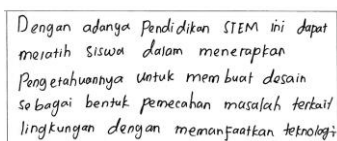 Dengan adanya Pendidikan STEM ini dapat
melatih siswa dalam menerapkan
Pengetahuannya untuk membuat desain
sebagai bentuk pemecahan masalah terkait
lingkungan dengan memanfaatkan teknologi